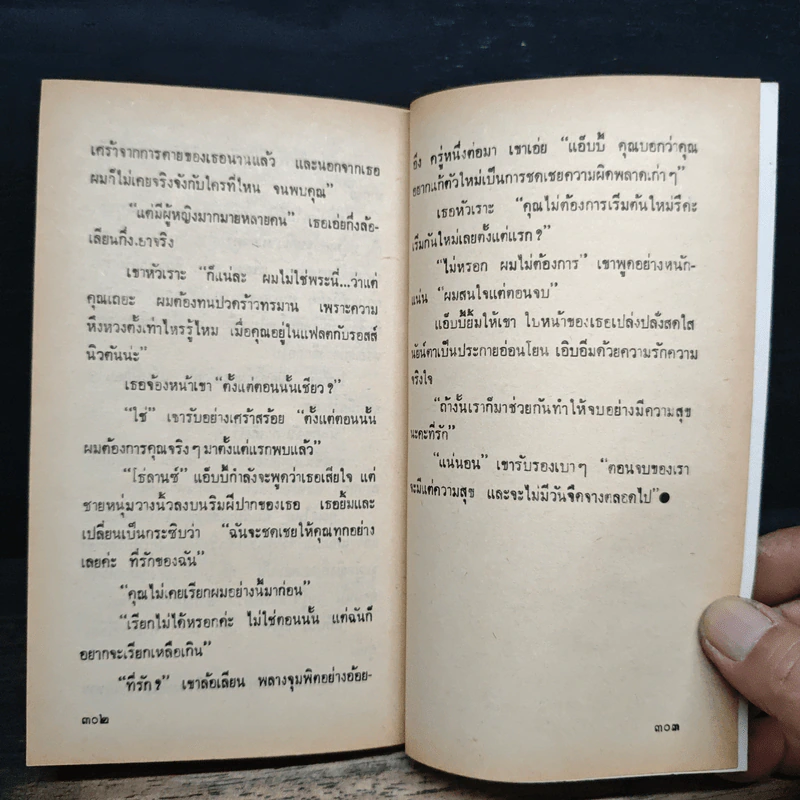 เศร้าจากการตายของเธอนานแล้ว และนอกจากเธอ
ผมก็ไม่เคยจริงจังกับใครที่ไหน จนพบคุณ”
“แต่มีผู้หญิงมากมายหลายคน” เธอเอ่ยกึ่งล้อ-
เลียนกึ่งเอาจริง
เขาหัวเราะ “ก็แน่ละ ผมไม่ใช่พระนี่...ว่าแต่
คุณเถอะ ผมต้องทนปวดร้าวทรมาน เพราะความ
หึงหวงตั้งเท่าไหร่รู้ไหม เมื่อคุณอยู่ในแฟลตกับรอสส์
นิวตันน่ะ”
เธอจ้องหน้าเขา “ตั้งแต่ตอนนั้นเชียว?”
“ใช่” เขารับอย่างเศร้าสร้อย “ตั้งแต่ตอนนั้น
ผมต้องการคุณจริงๆ มาตั้งแต่แรกพบแล้ว”
“โธ่ลานซ์” แอ็บบี้กำลังจะพูดว่าเธอเสียใจ แต่
ชายหนุ่มวางนิ้วลงบนริมฝีปากของเธอ เธอยิ้มและ
เปลี่ยนเป็นกระซิบว่า “ฉันจะชดเชยให้คุณทุกอย่าง
เลยค่ะ ที่รักของฉัน”
“คุณไม่เคยเรียกผมอย่างนี้มาก่อน”
“เรียกไม่ได้หรอกค่ะ ไม่ใช่ตอนนั้น แต่ฉันก็
อยากจะเรียกเหลือเกิน”
“ที่รัก?” เขาล้อเลียน พลางจุมพิตอย่างอ้อย-
๓๐๒
อิ่ง ครู่หนึ่งต่อมา เขาเอ่ย “แอ็บบี้ คุณบอกว่าคุณ
อยากแก้ตัวใหม่เป็นการชดเชยความผิดพลาดเก่าๆ”
เธอหัวเราะ “คุณไม่ต้องการเริ่มต้นใหม่รึคะ
เริ่มกันใหม่เลยตั้งแต่แรก?”
“ไม่หรอก ผมไม่ต้องการ” เขาพูดอย่างหนัก-
แน่น “ผมสนใจแต่ตอนจบ”
แอ็บบี้ยิ้มให้เขา ใบหน้าของเธอเปล่งปลั่งสดใส
นัยน์ตาเป็นประกายอ่อนโยน เอิบอิ่มด้วยความรักความ
จริงใจ
“ถ้างั้นเราก็มาช่วยกันทำให้จบอย่างมีความสุข
นะคะที่รัก”
“แน่นอน” เขารับรองเบาๆ “ตอนจบของเรา
จะมีแต่ความสุข และจะไม่มีวันจืดจางตลอดไป”●
๓๐๓